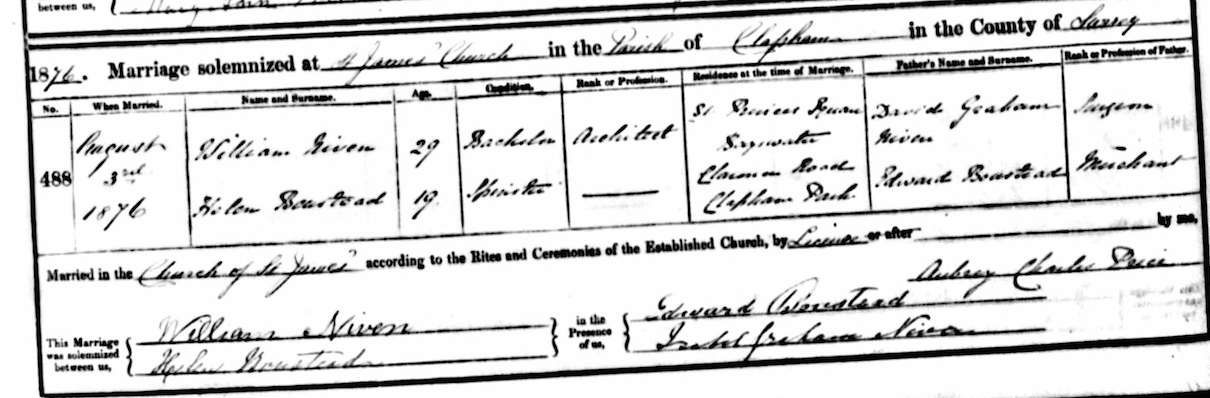 between us,
1876. Marriage solemnized at St James' Church in the Parish of Clapham in the County of Surrey
No. When Married. Name and Surname. Age. Condition. Rank or Profession. Residence at the time of Marriage. Father's Name and Surname. Rank or Profession of Father.
488
August 3rd 1876
William Niven 29 Bachelor Architect St Princes Square Bayswater David Graham Niven Surgeon
Helen Boustead 19 Spinster — Clarence Road Clapham Park Edward Boustead Merchant
Married in the Church of St James' according to the Rites and Ceremonies of the Established Church, by Licence or after by me,
Aubrey Charles Price
This Marriage was solemnized between us,
William Niven
Helen Boustead
in the Presence of us,
Edward Boustead
Isabel Graham Niven